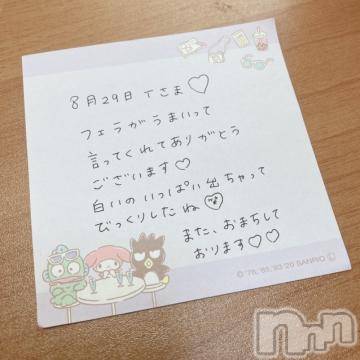 8月29日 Tさま♡
フェラがうまいって
言ってくれてありがとう
ございます♡
白いのいっぱい出ちゃって
びっくりしたね♡
また、おまちして
おります♡♡
©'76,'85,'93,'20 SANRIO Ⓛ